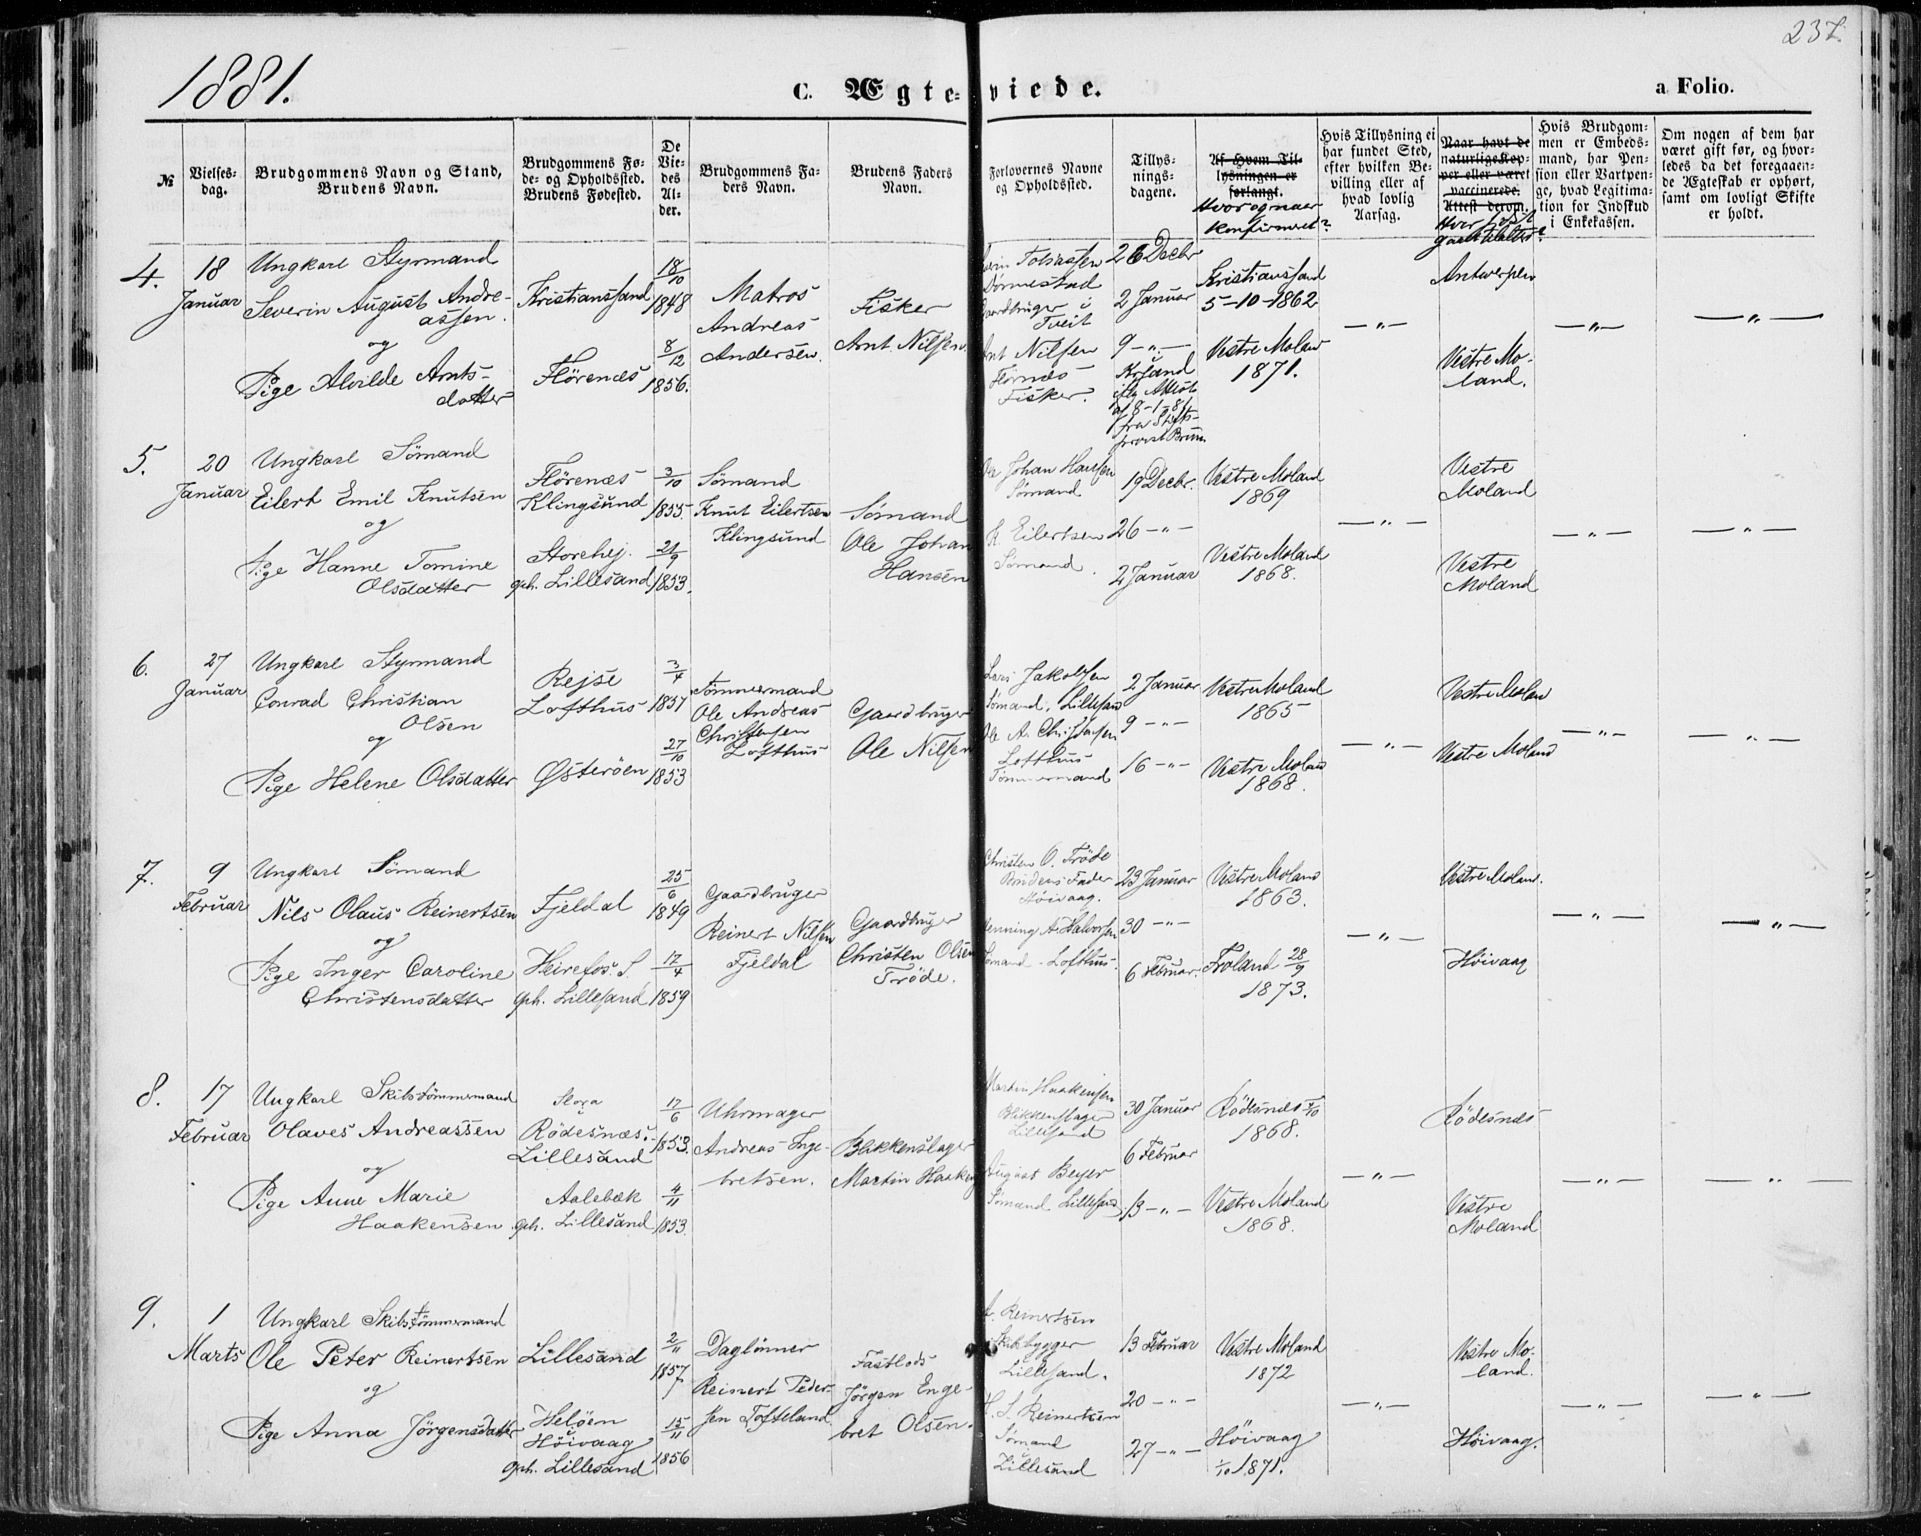 237.
1881.
C. Ægteviede.
a Folio.
№
Vielses-
dag.
Brudgommens Navn og Stand,
Brudens Navn.
Brudgommens Fø-
de- og Opholdssted.
Brudens Fødested.
De
Vie-
des
Al-
der.
Brudgommens Fa-
ders Navn.
Brudens Faders
Navn.
Forlovernes Navne
og Opholdssted.
Tillys-
nings-
dagene.
Af Hvem Til-
lysningen er
forlangt.
Hvor og naar
konfirmeret?
Hvis Tillysning ei
har fundet Sted,
efter hvilken Be-
villing eller af
hvad lovlig
Aarsag.
Naar havt de
naturlige Kop-
per eller været
vaccinerede.
Attest derom.
Hvor sidst
gaaet til alters?
Hvis Brudgom-
men er Embeds-
mand, har Pen-
sion eller Vartpen-
ge, hvad Legitima-
tion for Indskud
i Enkekassen.
Om nogen af dem har
været gift før, og hvor-
ledes da det foregaaen-
de Ægteskab er ophørt,
samt om lovligt Skifte
er holdt.
4.
18
Januar
Ungkarl Styrmand
Severin August Andre-
assen.
og
Pige Alvilde Arnts-
datter
Kristianssand
Flörenæs
18/10
1848
8/12
1856.
Matros
Andreas
Andersen.
Fisker
Arnt Nilsen.
Tobiassen
Dönnestad
Gaardbruger i
Tveit
Arnt Nilsen
Flörnæs
Fisker.
26 Decbr
2 Januar
9 -„-
Krsand
iflg Attest
af 8-1-81
fra Stifts-
provst Bruun
Kristianssand
5-10-1862
Vestre Moland
1871.
-„-
Antwerpen
Vestre Mo-
land.
-„-
-„-
5.
20
Januar
Ungkarl Sömand
Eilert Emil Knutsen
og
Pige Hanne Tomine
Olsdatter
Flörenæs
Klingsund
Storehej.
oph. Lillesand
3/10
1855.
21/9
1853.
Sömand
Knut Eilertsen
Klingsund
Sömand
Ole Johan
Hansen
Ole Johan Hansen
Sömand
K. Eilertsen
Sömand.
19 Decbr.
26 -„-
2 Januar
Vestre Moland
1869
Vestre Moland
1868.
-„-
Vestre
Moland
Vestre
Moland
-„-
-„-
6.
27
Januar
Ungkarl Styrmand
Conrad Christian
Olsen
og
Pige Helene Olsdatter
Rejse
Lofthus
Østeröen
3/4
1857
27/10
1853
Tömmermand
Ole Andreas
Christensen
Lofthus
Gaardbruger
Ole Nilsen
Lars Jakobsen
Sömand, Lillesand
Ole A. Christensen
Lofthus
Tömmermand
2 Januar
9 -„-
16 -„-
Vestre Moland
1865
Vestre Moland
1868.
-„-
Vestre Moland
Vestre Moland
-„-
-„-
7.
9
Februar
Ungkarl Sömand
Nils Olaus Reinertsen
og
Pige Inger Caroline
Christensdatter
Fjeldal
Heirefos. S.
oph. Lillesand
25/6
1849
17/4
1859
Gaardbruger
Reinert Nilsen
Fjeldal
Gaardbruger
Christen Olsen
Tröde.
Christen O. Tröde
Brudens Fader
Höivaag.
Henning A. Halvorsen
Sömand - Lofthus.
23 Januar
30 -„-
6 Februar.
Vestre Moland
1863.
Froland 28/9
1873.
-„-
Vestre Moland.
Höivaag
-„-
-„-
8.
17
Februar
Ungkarl Skibstömmermand
Olaves Andreassen
og
Pige Anne Marie
Haakensen
Rödesnæs.
Lillesand
Aalebæk
oph. Lillesand
17/6
1853.
4/11
1853.
Uhrmager
Andreas Inge-
bretsen.
Blikkenslager
Martin Haaken
Martin Haakensen
Blikkenslager
Lillesand
August Beyer
Sömand Lillesand
30 Januar
6 Februar
13 -„-
Rödesnæs 4/10
1868.
Vestre Moland
1868.
-„-
Rödesnæs
Vestre
Moland
-„-
-„-
9.
1
Marts
Ungkarl Skibstömmermand
Ole Peter Reinertsen
og
Pige Anna Jörgensdatter
Lillesand
Helöen
Höivaag
oph. Lillesand
2/11
1857
15/11
1856
Daglönner
Reinert Peder-
sen Tofteland.
Fastlods
Jörgen Enge-
bret Olsen.
Reinertsen
Skibbygger
Lillesand.
Reinertsen
Sömand
Lillesand
13 Februar
20 -„-
27 -„-
Vestre Moland
1872
Höivaag
1/10 1871.
-„-
Vestre Mo-
land.
Höivaag.
-„-
-„-